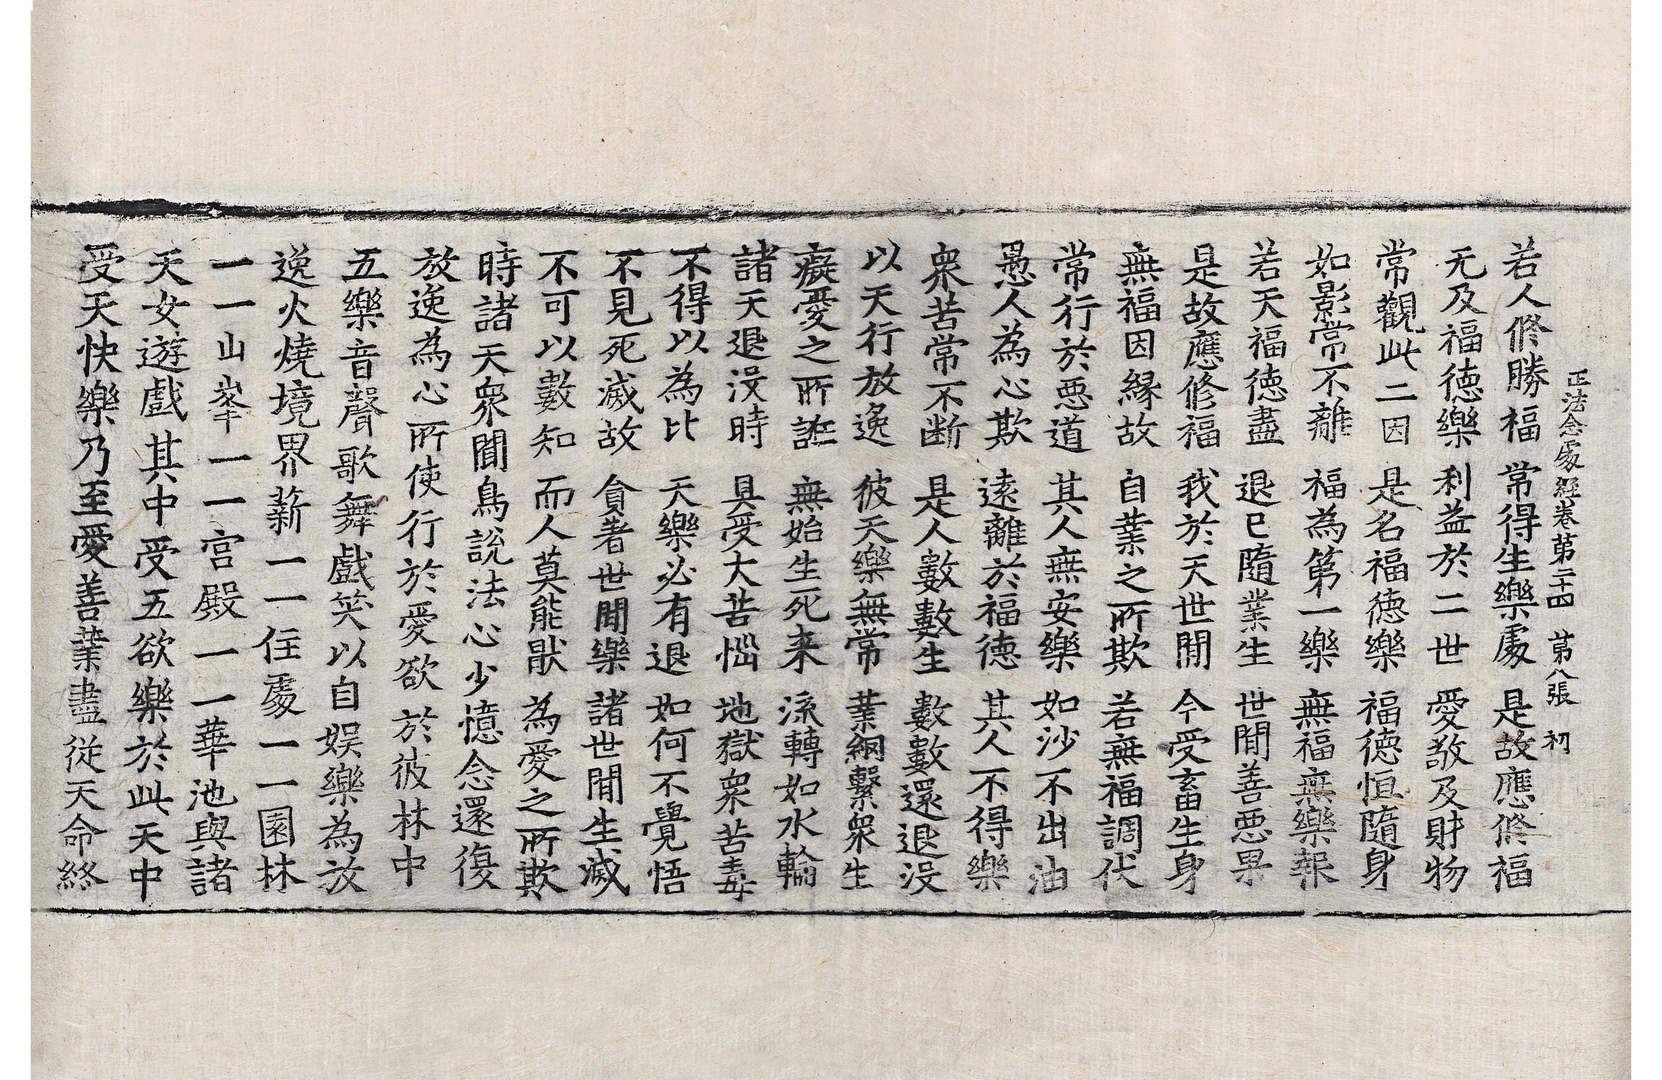 正法念處經卷第二十四 第八張 初
若人修勝福 常得生樂處 是故應修福
无及福德樂 利益於二世 愛敬及財物
常觀此二因 是名福德樂 福德恒隨身
如影常不離 福為第一樂 無福無樂報
若天福德盡 退已隨業生 世間善惡果
是故應修福 我於天世間 今受畜生身
無福因縁故 自業之所欺 若無福調伏
常行於惡道 其人無安樂 如沙不出油
愚人為心欺 遠離於福德 其人不得樂
衆苦常不断 是人數數生 數數還退没
以天行放逸 彼天樂無常 業網繫衆生
癡愛之所誑 無始生死来 流轉如水輪
諸天退没時 具受大苦惱 地獄衆苦毒
不得以為比 天樂必有退 如何不覺悟
不見死滅故 貪著世間樂 諸世間生滅
不可以數知 而人莫能猒 為愛之所欺
時諸天衆聞鳥說法心少憶念還復
放逸為心所使行於愛欲於彼林中
五樂音聲歌舞戲笑以自娱樂為放
逸火燒境界薪一一住處一一園林
一一山峯一一宮殿一一華池與諸
天女遊戲其中受五欲樂於此天中
受天快樂乃至愛善業盡從天命終